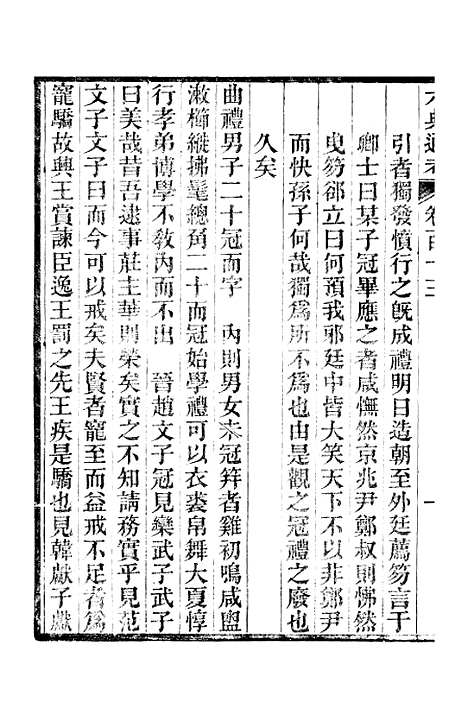 引者獨發憤行之旣成禮明日造朝至外廷薦笏言于
卿士曰某子冠畢應之者咸憮然京兆尹鄭叔則怫然
曳笏郤立曰何預我邪廷中皆大笑天下不以非鄭尹
而快孫子何哉獨爲所不爲也由是觀之冠禮之廢也
久矣
曲禮男子二十冠而字　內則男女未冠笄者雞初鳴咸盥
漱櫛縰拂髦總角二十而冠始學禮可以衣裘帛舞大夏惇
行孝弟博學不敎內而不出　晉趙文子冠見欒武子武子
曰美哉昔吾逮事莊主華則榮矣實之不知請務實乎見范
文子文子曰而今可以戒矣夫賢者寵至而益戒不足者爲
寵驕故興王賞諫臣逸王罰之先王疾是驕也見韓獻子獻